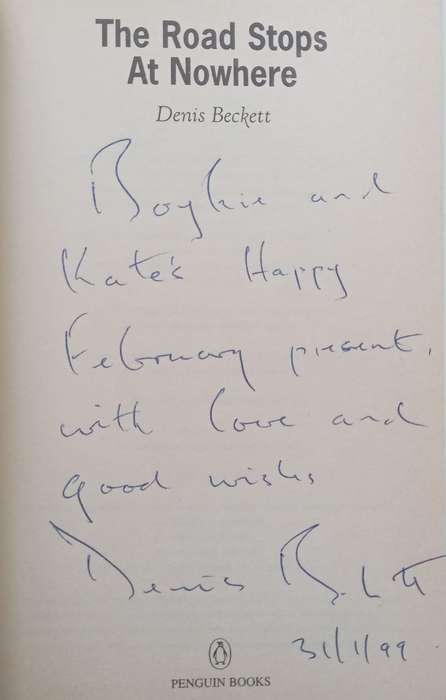 The Road Stops
At Nowhere
Denis Beckett
Boykie and
Kate's Happy
February present,
with love and
good wishes
Denis Beckett
31/1/99
PENGUIN BOOKS